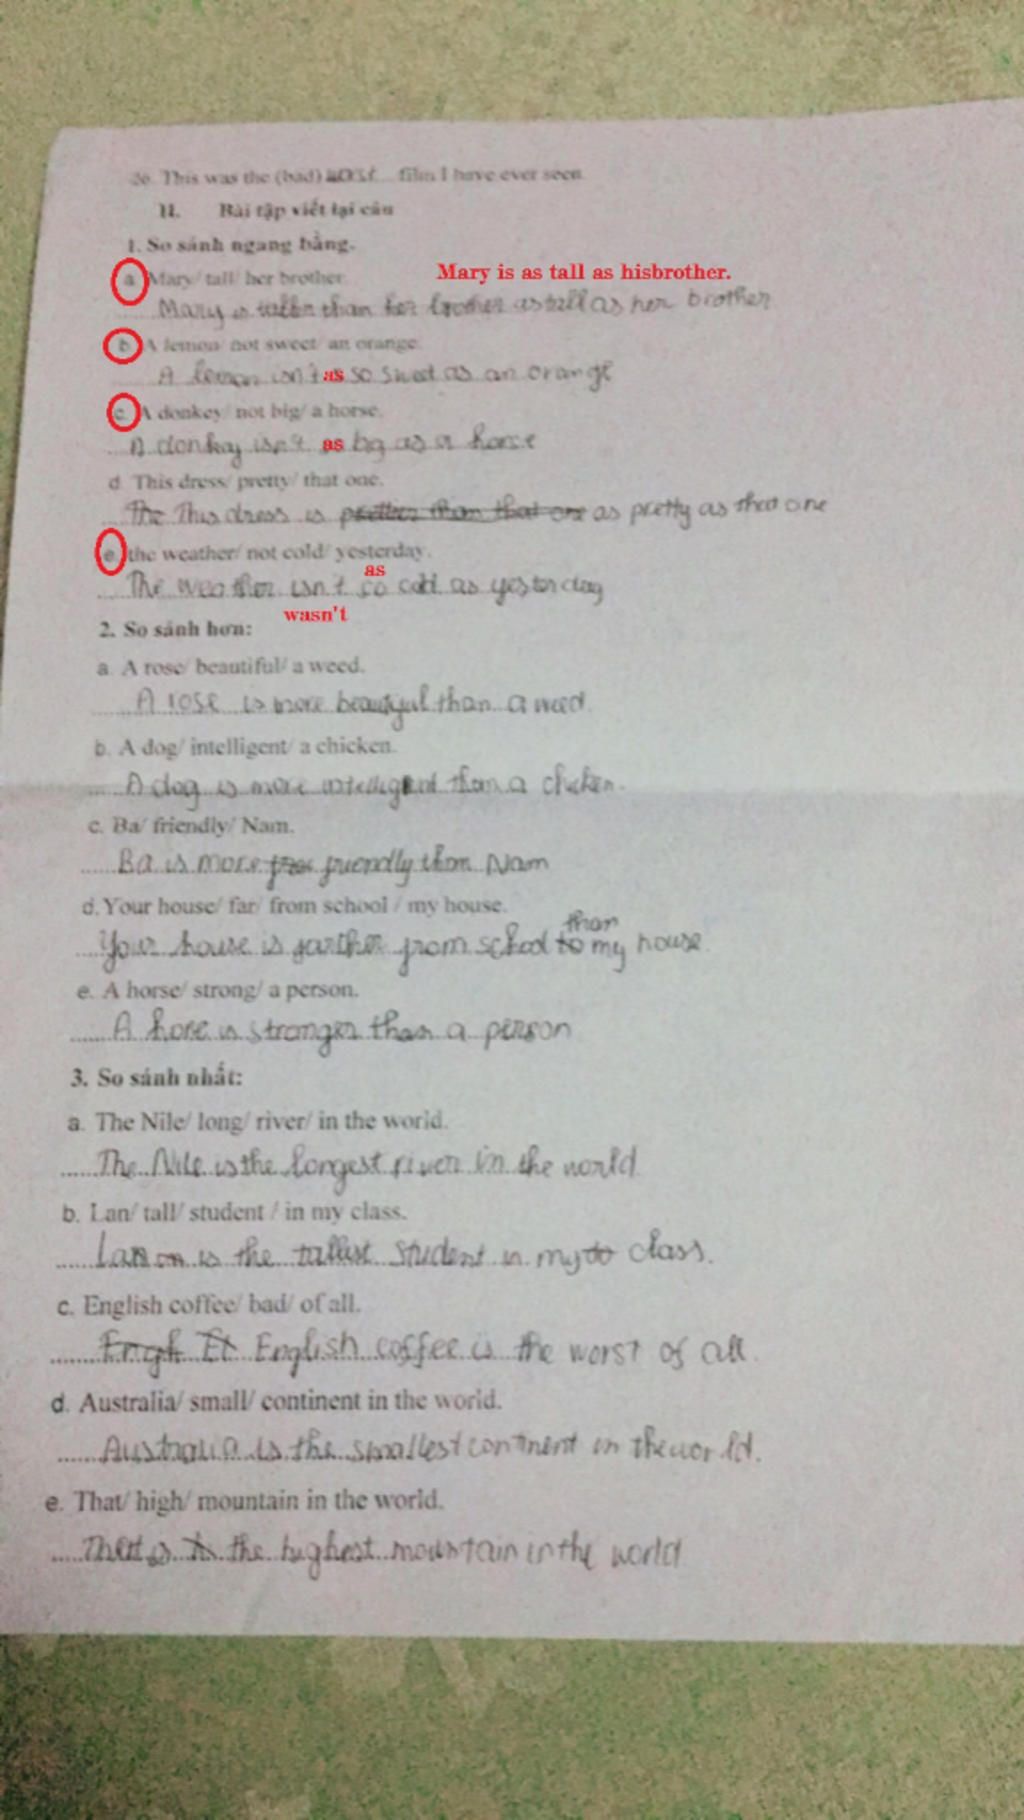 26. This was the (bad) worst film I have ever seen.
II. Bài tập viết lại câu
1. So sánh ngang bằng.
a. Mary/ tall/ her brother. Mary is as tall as hisbrother.
Mary is taller than her brother as tall as her brother
b. A lemon/ not sweet/ an orange.
A lemon isn't as so sweet as an orange
c. A donkey/ not big/ a horse.
A donkey isn't as big as a horse
d. This dress/ pretty/ that one.
The This dress is prettier than that one as pretty as that one
e. the weather/ not cold/ yesterday.
as
The weather isn't so cold as yesterday
wasn't
2. So sánh hơn:
a. A rose/ beautiful/ a weed.
A rose is more beautyful than a weed.
b. A dog/ intelligent/ a chicken.
A dog is more intelligent than a chicken.
c. Ba/ friendly/ Nam.
Ba is more friendly than Nam
d. Your house/ far/ from school / my house.
than
Your house is farther from school to my house.
e. A horse/ strong/ a person.
A hore is stronger than a person
3. So sánh nhất:
a. The Nile/ long/ river/ in the world.
The Nile is the longest river in the world
b. Lan/ tall/ student / in my class.
Lan is the tallest student in my class.
c. English coffee/ bad/ of all.
English coffee is the worst of all.
d. Australia/ small/ continent in the world.
Australia is the smallest continent in the world.
e. That/ high/ mountain in the world.
That is the highest mountain in the world